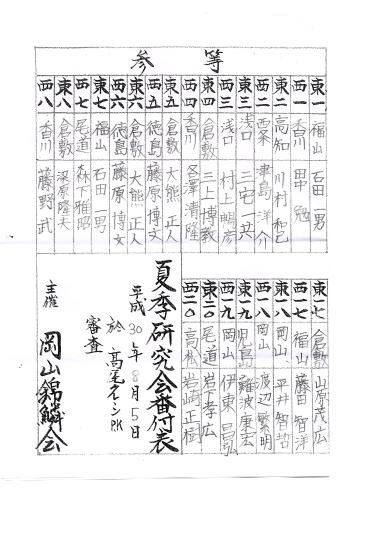 参等
東一 福山 石田一男
西一 香川 田中勉
東二 高知 川村和己
西二 西条 津島洋介
東三 浅口 三宅一共
西三 浅口 村上明彦
東四 倉敷 三上博教
西四 香川 各澤清隆
東五 倉敷 大熊正人
西五 徳島 藤原博文
東六 倉敷 大熊正人
西六 徳島 藤原博文
東七 福山 石田一男
西七 尾道 森下雅昭
東八 倉敷 深原隆夫
西八 香川 藤野武
東一七 倉敷 山原茂広
西一七 福山 藤田智洋
東一八 岡山 平井智哲
西一八 岡山 渡辺繁明
東一九 児島 難波康宏
西一九 岡山 伊東昌弘
東二〇 尾道 岩下孝広
西二〇 高松 岩崎正樹
夏季研究会番付表
平成30年8月5日
於 高尾クイーンP.K
審査
主催 岡山錦鱗会